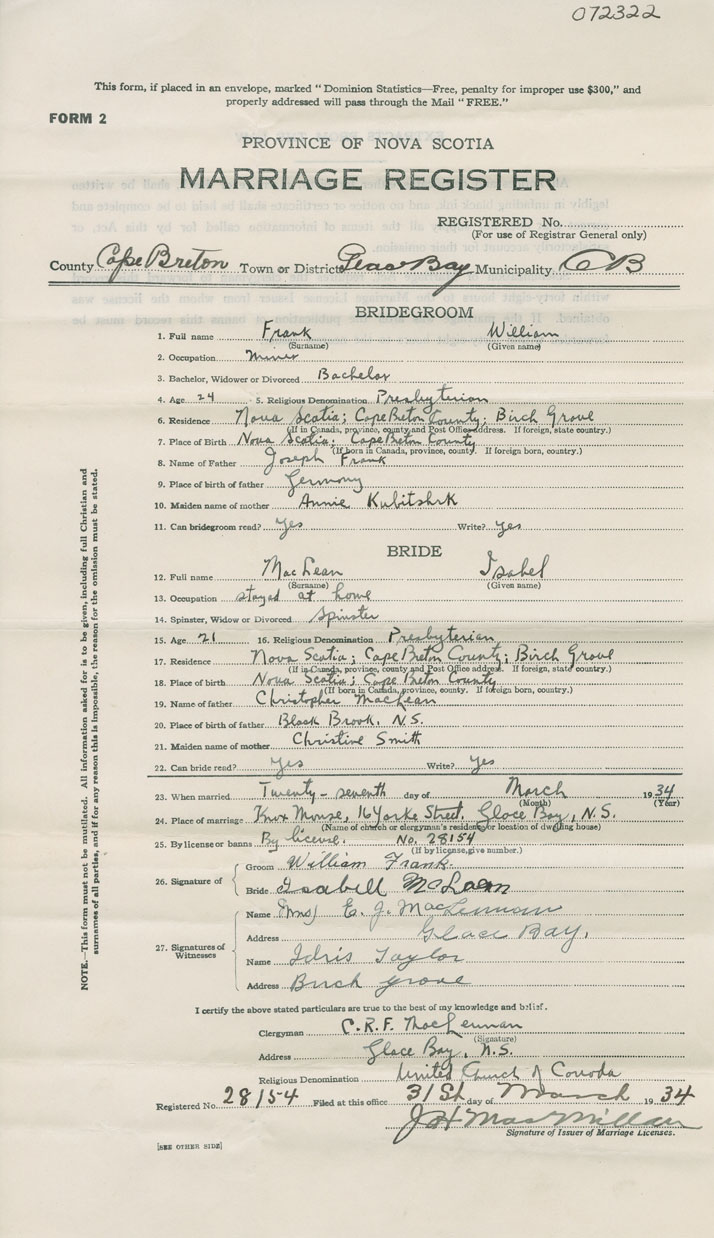 072322
This form, if placed in an envelope, marked "Dominion Statistics—Free, penalty for improper use $300," and
properly addressed will pass through the Mail "FREE."
FORM 2
PROVINCE OF NOVA SCOTIA
MARRIAGE REGISTER
REGISTERED No.
(For use of Registrar General only)
County Cape Breton Town or District Glace Bay Municipality C B
BRIDEGROOM
1. Full name Frank William
(Surname) (Given name)
2. Occupation Miner
3. Bachelor, Widower or Divorced Bachelor
4. Age 24 5. Religious Denomination Presbyterian
6. Residence Nova Scotia; Cape Breton County; Birch Grove
(If in Canada, province, county and Post Office address. If foreign, state country.)
7. Place of Birth Nova Scotia; Cape Breton County
(If born in Canada, province, county. If foreign born, country.)
8. Name of Father Joseph Frank
9. Place of birth of father Germany
10. Maiden name of mother Annie Kubitshrk
11. Can bridegroom read? Yes Write? Yes
BRIDE
12. Full name MacLean Isabel
(Surname) (Given name)
13. Occupation stayed at home
14. Spinster, Widow or Divorced Spinster
15. Age 21 16. Religious Denomination Presbyterian
17. Residence Nova Scotia; Cape Breton County; Birch Grove
(If in Canada, province, county and Post Office address. If foreign, state country.)
18. Place of birth Nova Scotia; Cape Breton County
(If born in Canada, province, county. If foreign born, country.)
19. Name of father Christopher MacLean
20. Place of birth of father Black Brook, N.S.
21. Maiden name of mother Christine Smith
22. Can bride read? Yes Write? Yes
23. When married Twenty-seventh day of March 1934
(Month) (Year)
24. Place of marriage Knox Manse, 16 Yorke Street, Glace Bay, N.S.
(Name of church or clergyman's residence or location of dwelling house)
25. By license or banns By license. No. 28154
(If by license, give number.)
26. Signature of
Groom William Frank.
Bride Isabell McLean
27. Signatures of Witnesses
Name Mrs) E. J. MacLennan
Address Glace Bay,
Name Idris Taylor
Address Birch grove
I certify the above stated particulars are true to the best of my knowledge and belief.
Clergyman C.R.F. MacLennan
(Signature)
Address Glace Bay, N.S.
Religious Denomination United Church of Canada
Registered No. 28154 Filed at this office 31St day of March 1934
J H MacMillan
Signature of Issuer of Marriage Licenses.
[SEE OTHER SIDE]
NOTE.—This form must not be mutilated. All information asked for is to be given, including full Christian and
surnames of all parties, and if for any reason this is impossible, the reason for the omission must be stated.